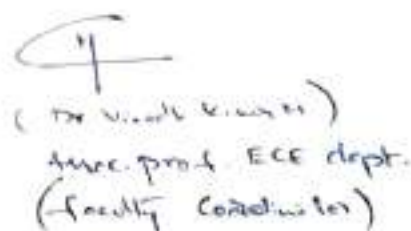 (Dr Vinod Kumar)
Assoc. prof. ECE dept.
(faculty Coordinator)